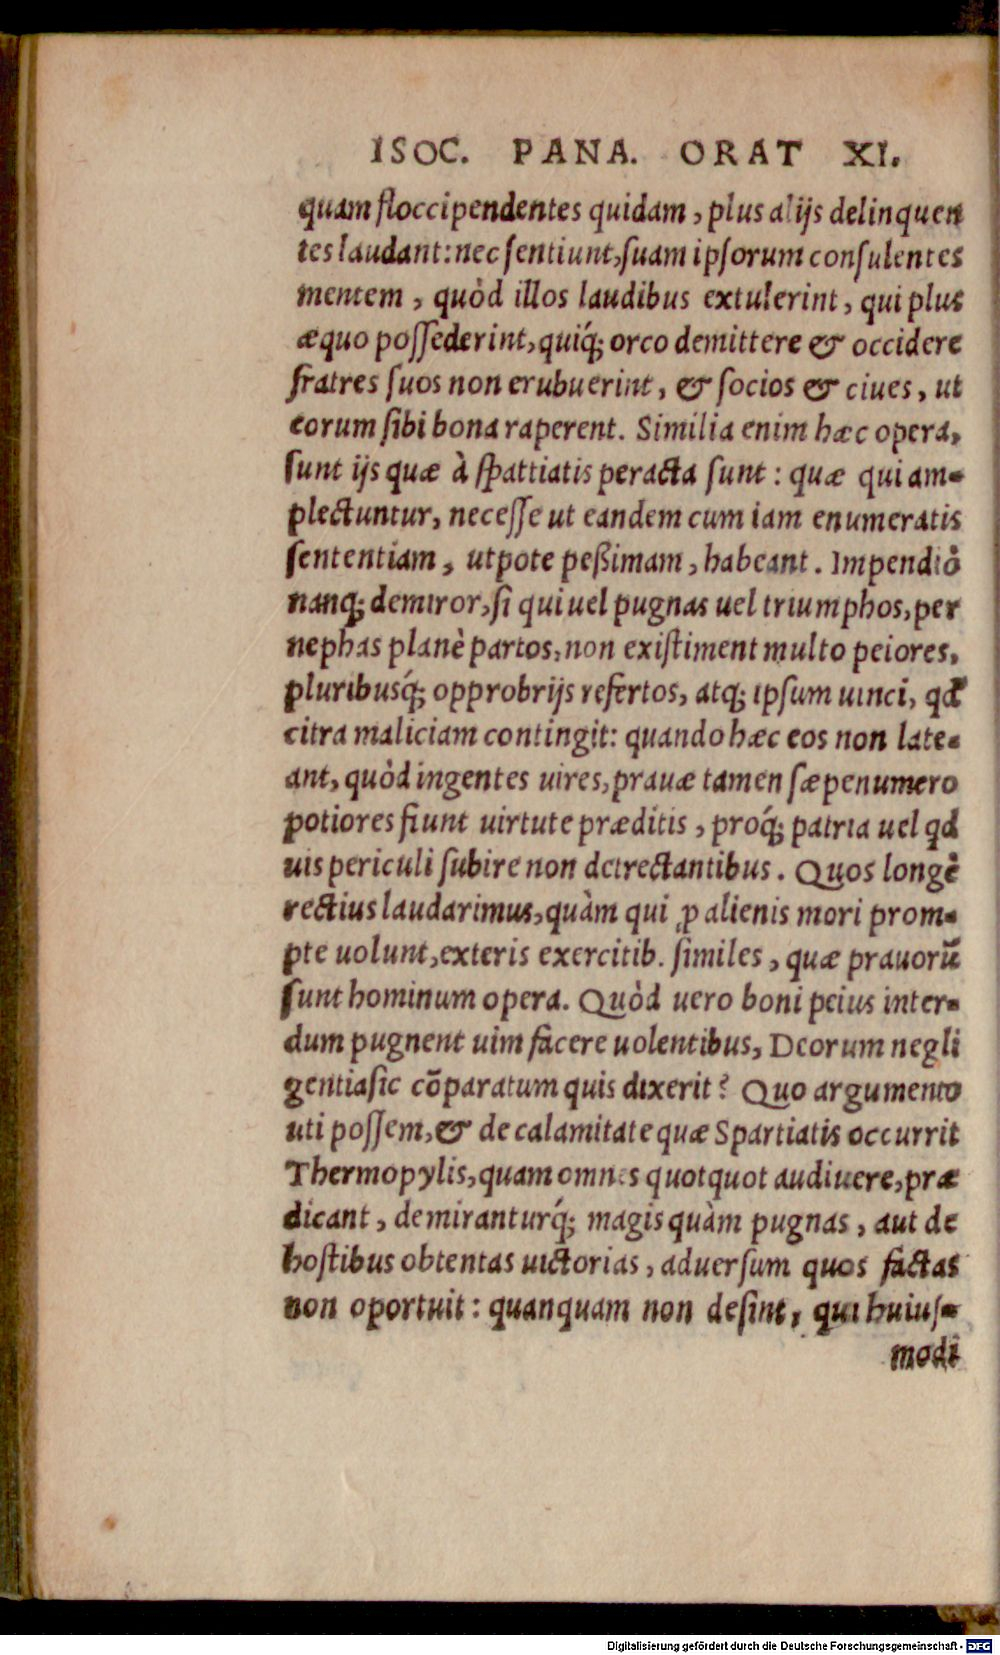 ISOC. PANA. ORAT XI.
quam floccipendentes quidam, plus alijs delinquen
tes laudant: nec sentiunt, suam ipsorum consulentes
mentem, quòd illos laudibus extulerint, qui plus
æquo possederint, quiq́; orco demittere & occidere
fratres suos non erubuerint, & socios & ciues, ut
eorum sibi bona raperent. Similia enim hæc opera,
sunt ijs quæ à spattiatis peracta sunt: quæ qui am-
plectuntur, necesse ut eandem cum iam enumeratis
sententiam, utpote peßimam, habeant. Impendiò
nanq; demiror, si qui uel pugnas uel triumphos, per
nephas planè partos, non existiment multo peiores,
pluribusq́; opprobrijs refertos, atq; ipsum uinci, qđ
citra maliciam contingit: quando hæc eos non late-
ant, quòd ingentes uires, prauæ tamen sæpenumero
potiores fiunt uirtute præditis, proq́; patria uel qđ
uis periculi subire non detrectantibus. Quos longè
rectius laudarimus, quàm qui ꝓ alienis mori prom-
pte uolunt, exteris exercitib. similes, quæ prauorũ
sunt hominum opera. Quòd uero boni peius inter-
dum pugnent uim facere uolentibus, Deorum negli
gentia sic cõparatum quis dixerit? Quo argumento
uti possem, & de calamitate quæ Spartiatis occurrit
Thermopylis, quam omnes quotquot audiuere, præ
dicant, demiranturq́; magis quàm pugnas, aut de
hostibus obtentas uictorias, aduersum quos factas
non oportuit: quanquam non desint, qui huius-
modi
Digitalisierung gefördert durch die Deutsche Forschungsgemeinschaft - DFG